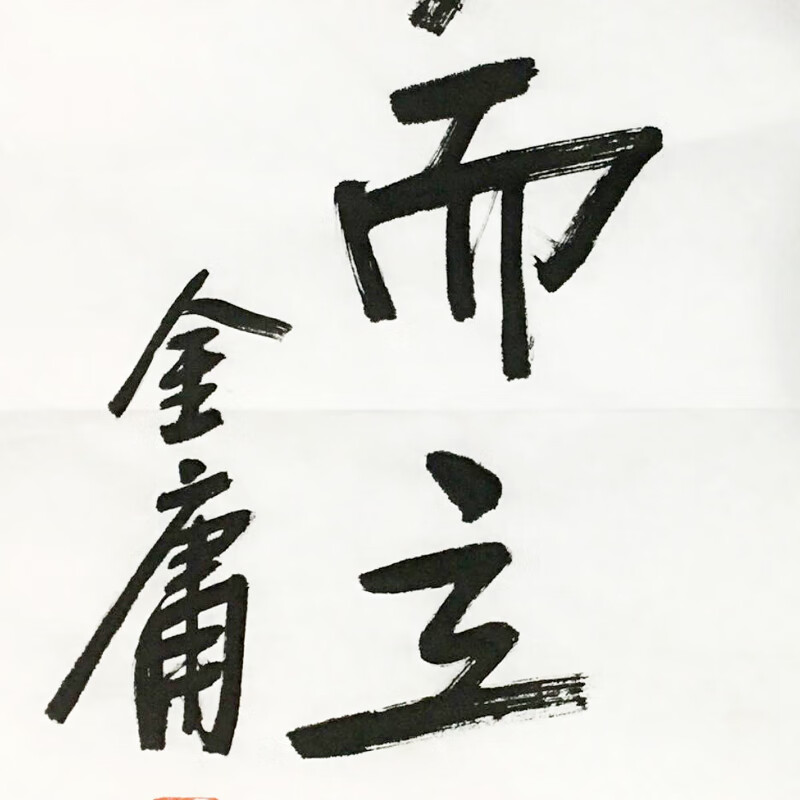 而立
金庸